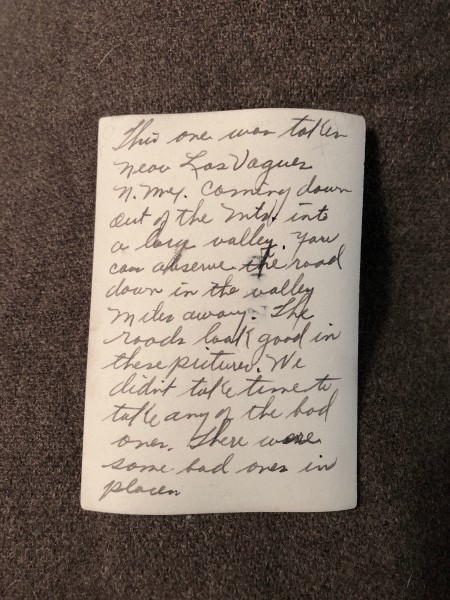 This one was taken
near Los Vagues
N. Mex. coming down
out of the Mtds. into
a large valley. You
can observe the road
down in the valley
miles away. The
roads look good in
these pictures. We
didnt take time to
take any of the bad
ones. There were
some bad ones in
places